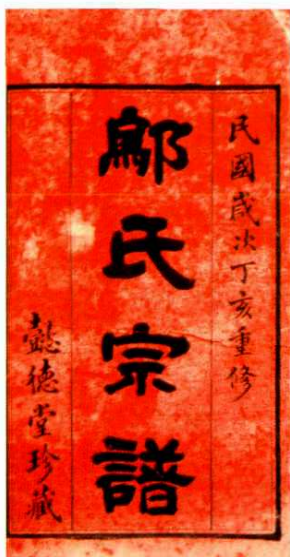 民國歲次丁亥重修
鄔氏宗譜
懿德堂珍藏